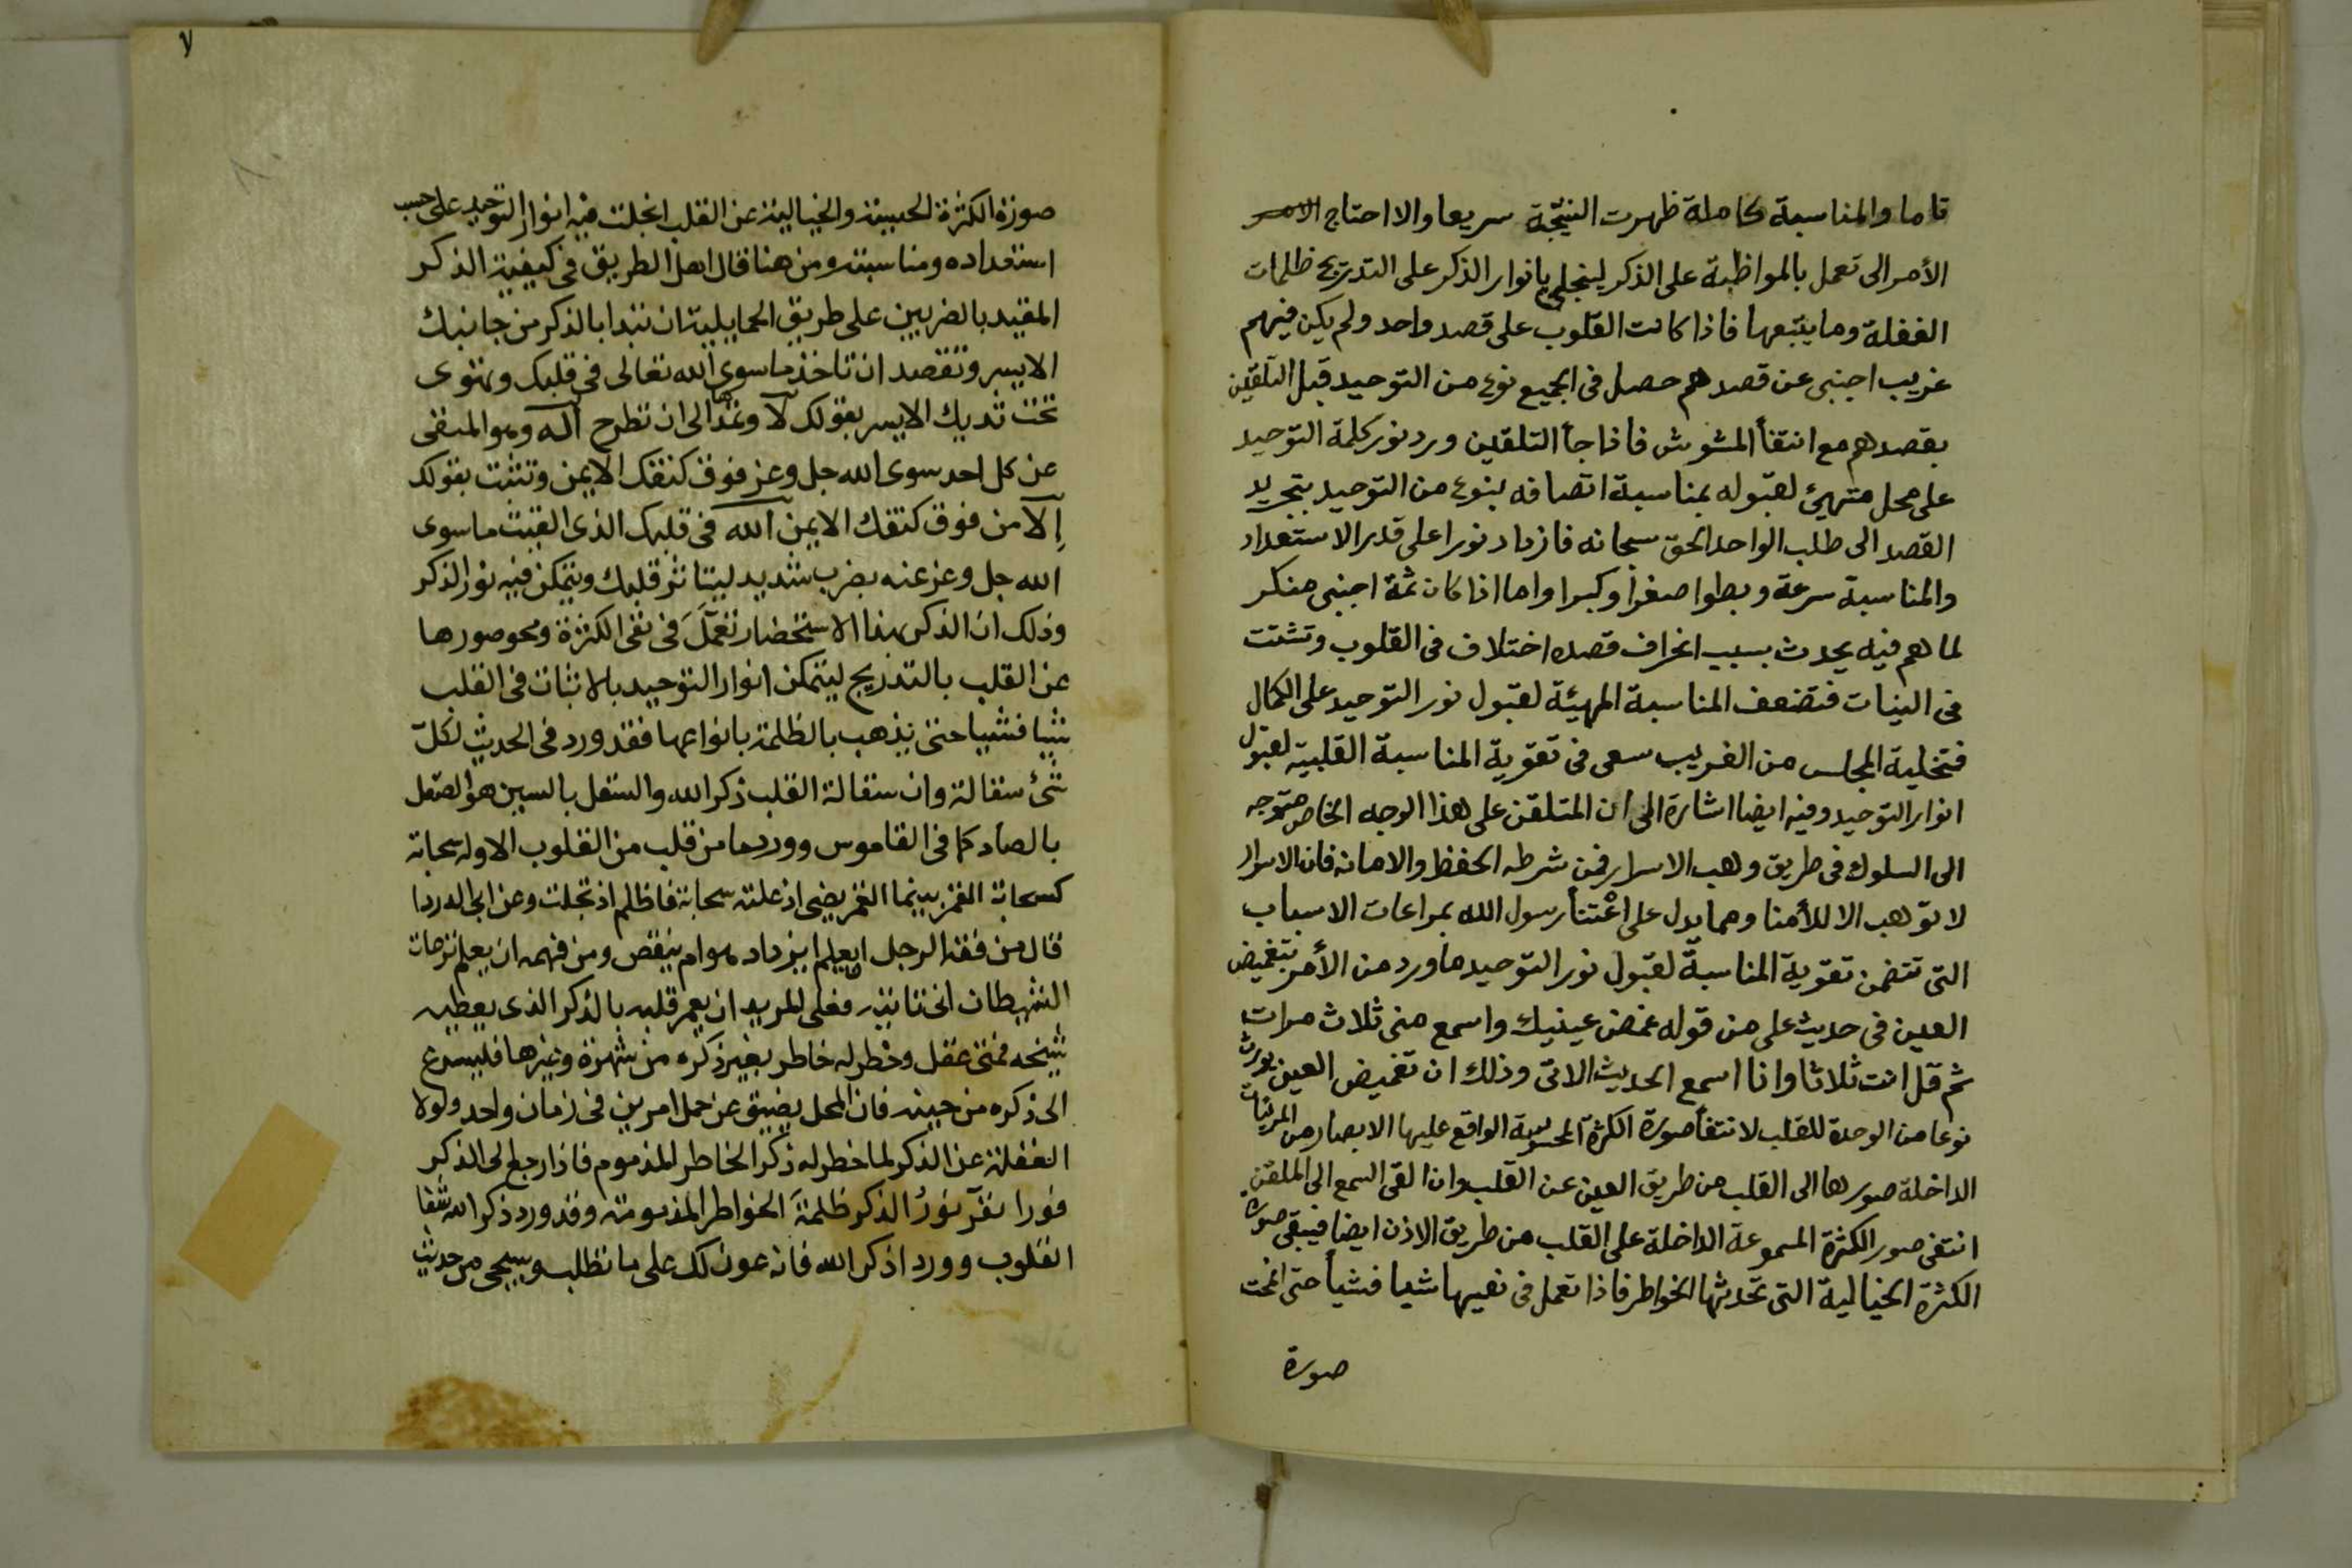 تاما والمناسبة كاملة ظهرت النتيجة سريعا والا احتاج الامر
الأمر الى تعمل بالمواظبة على الذكر لينجلى بانوار الذكر على التدريج ظلمات
الغفلة وما يتبعها فاذا كانت القلوب على قصد واحد ولم يكن فيهم
غريب اجنبى عن قصدهم حصل فى الجميع نوع من التوحيد قبل التلقين
بقصدهم مع انتفأ المشوش فاذا جأ التلقين ورد نور كلمة التوحيد
على محل متهيئ لقبوله بمناسبة اتصافه بنوع من التوحيد بتجريد
القصد الى طلب الواحد الحق سبحانه فازداد نورا على قدر الاستعداد
والمناسبة سرعة وبطوا صغرا وكبرا واما اذا كان ثمة اجنبى منكر
لما هم فيه يحدث بسبب انحراف قصده اختلاف فى القلوب وتشتت
فى النيات فتضعف المناسبة المهيئة لقبول نور التوحيد على الكمال
فتخلية المجلس من الغريب سعى فى تقوية المناسبة القلبية لقبول
انوار التوحيد وفيه ايضا اشارة الى ان المتلقن على هذا الوجه الخاص متوجه
الى السلوك فى طريق وهب الاسرار فمن شرطه الحفظ والامانة فان الاسرار
لا توهب الا للأمنا ومما يدل على اعتنأ رسول الله بمراعات الاسباب
التى تتضمن تقوية المناسبة لقبول نور التوحيد ما ورد من الأمر بتغميض
العين فى حديث على من قوله غمض عينيك واسمع منى ثلاث مرات
ثم قل انت ثلاثا وانا اسمع الحديث الاتى وذلك ان تغميض العين يورث
نوعا من الوحدة للقلب لانتفأ صورة الكثرة المحسوسة الواقع عليها الابصار من المرئيات
الداخلة صورها الى القلب من طريق العين عن القلب وان القى السمع الى الملقن
انتفى صور الكثرة المسموعة الداخلة على القلب من طريق الاذن ايضا فيبقى صورة
الكثرة الخيالية التى تحدثها الخواطر فاذا تعمل فى نفيها شيا فشيأ حتى انمحت
صورة
٧
صورة الكثرة الحسية والخيالية عن القلب انجلت فيه انوار التوحيد على حسب
استعداده ومناسبته ومن هنا قال اهل الطريق فى كيفية الذكر
المقيد بالضربين على طريق الحمايلية ان تبدا بالذكر من جانبك
الايسر وتقصد ان تاخذ ما سوى الله تعالى فى قلبك وهو
تحت ثديك الايسر بقولك لا وتمدها الى ان تطرح اله وهو المنفى
عن كل احد سوى الله جل وعز فوق كتفك الايمن وتثبت بقولك
إلا من فوق كتفك الايمن الله فى قلبك الذى القيت ما سوى
الله جل وعز عنه بضرب شديد ليتاثر قلبك ويتمكن فيه نور الذكر
وذلك ان الذكر بهذا الاستحضار تعمل فى نفى الكثرة ومحو صورها
عن القلب بالتدريج ليتمكن انوار التوحيد بالاثبات فى القلب
شيا فشيا حتى يذهب بالظلمة بانواعها فقد ورد فى الحديث لكل
شئ سقالة وان سقالة القلب ذكر الله والسقل بالسين هو الصقل
بالصاد كما فى القاموس وورد ما من قلب من القلوب الا وله سحابة
كسحابة القمر بينما القمر يضى اذ علته سحابة فاظلم اذ تجلت وعن ابى الدردا
قال من فقه الرجل ان يعلم ايزداد هو ام ينقص ومن فهمه ان يعلم نزغات
الشيطان انى تاتيه فعلى المريد ان يعمر قلبه بالذكر الذى يعطيه
شيخه فمتى غفل وخطر له خاطر بغير ذكره من شهوة وغيرها فليسرع
الى ذكره من حينه فان المحل يضيق عن حمل امرين فى زمان واحد ولولا
الغفلة عن الذكر لما خطر له ذكر الخاطر المذموم فاذا رجع الى الذكر
فورا نفر نور الذكر ظلمة الخواطر المذمومة وقد ورد ذكر الله شفا
القلوب وورد اذكر الله فانه عون لك على ما تطلب وسيجى من حديث